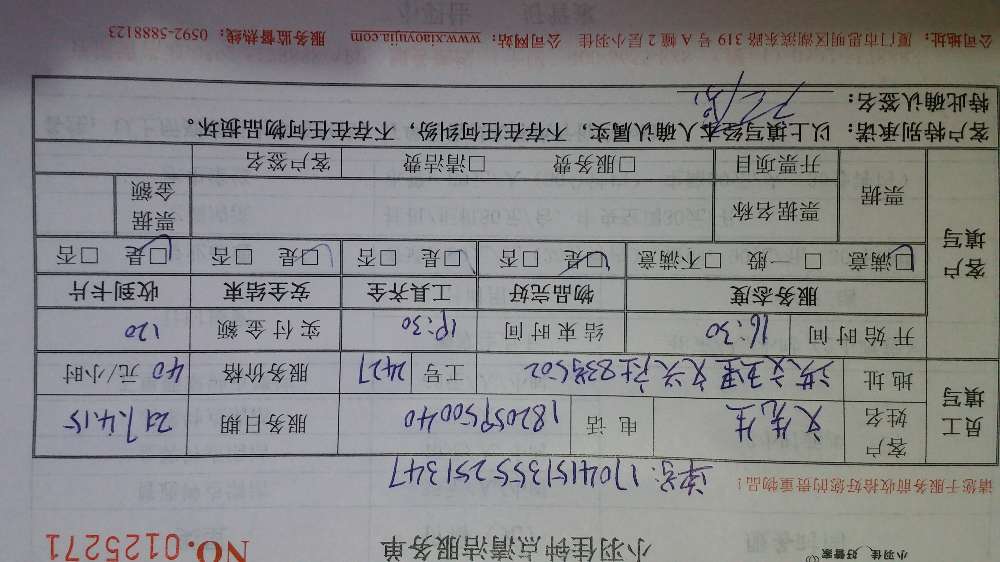 小羽佳、好管家
小羽佳钟点清洁服务单
NO.0125271
请您于服务前收拾好您的贵重物品！
单号：1704151355251347
员工填写
客户姓名 文先生 电话 18205950040 服务日期 2017.4.15
地址 工号 2427 服务价格 40 元/小时
开始时间 16:30 结束时间 19:30 实付金额 120
客户填写
服务态度 物品完好 工具齐全 安全结束 收到卡片
□满意 □一般 □不满意 □是 □否 □是 □否 □是 □否 □是 □否
票据 票据名称 票据金额
开票项目 □服务费 □清洁费 客户签名
客户特别承诺：以上填写经本人确认属实，不存在任何纠纷，不存在任何物品损坏。
特此确认签名：
公司地址：厦门市思明区湖滨东路 319 号 A 幢 2 层小羽佳 公司网站：www.xiaoyujia.com 服务监督热线：0592-5888123